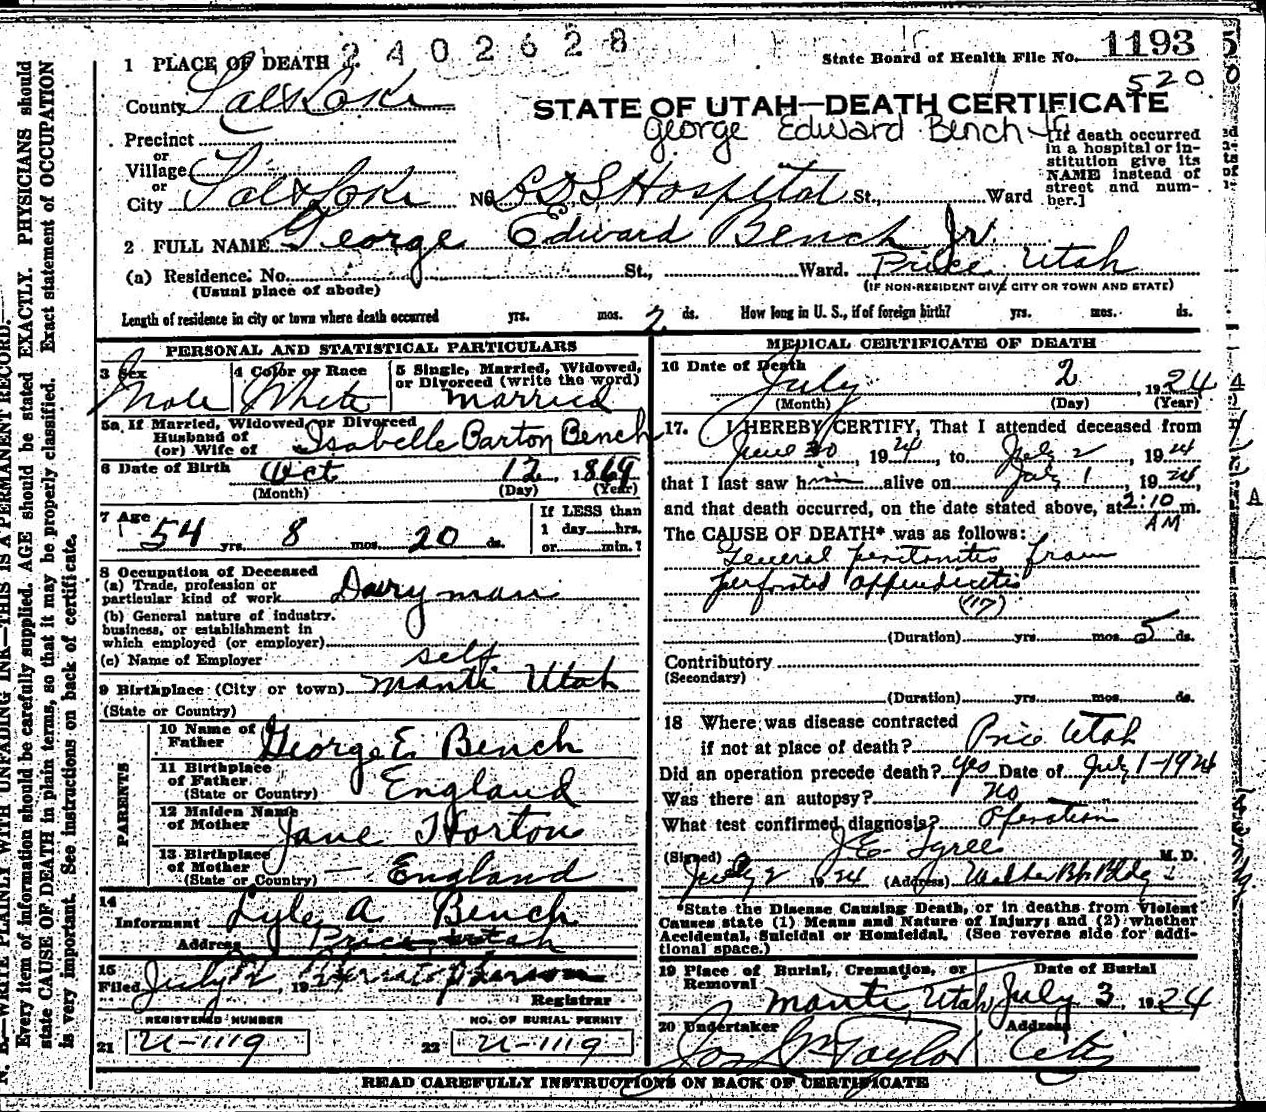 2402628
1 PLACE OF DEATH
State Board of Health File No. 1193
520
County Salt Lake
STATE OF UTAH—DEATH CERTIFICATE
George Edward Bench Jr
Precinct
or
Village
or
City Salt Lake No. L D S Hospital St., Ward
[If death occurred
in a hospital or in-
stitution give its
NAME instead of
street and num-
ber.]
2 FULL NAME George Edward Bench Jr.
(a) Residence: No. St., Ward. Price, Utah
(Usual place of abode) (IF NON-RESIDENT GIVE CITY OR TOWN AND STATE)
Length of residence in city or town where death occurred yrs. mos. 2 ds. How long in U. S., if of foreign birth? yrs. mos. ds.
PERSONAL AND STATISTICAL PARTICULARS
3 Sex Male
4 Color or Race White
5 Single, Married, Widowed,
or Divorced (write the word)
Married
5a If Married, Widowed or Divorced
Husband of
(or) Wife of Isabelle Barton Bench
6 Date of Birth Oct 12, 1869
(Month) (Day) (Year)
7 Age 54 yrs. 8 mos. 20 ds.
If LESS than
1 day hrs.
or min.?
8 Occupation of Deceased
(a) Trade, profession or
particular kind of work Dairyman
(b) General nature of industry,
business, or establishment in
which employed (or employer)
(c) Name of Employer self
9 Birthplace (City or town) Manti Utah
(State or Country)
PARENTS
10 Name of
Father George E. Bench
11 Birthplace
of Father
(State or Country) England
12 Maiden Name
of Mother Jane Horton
13 Birthplace
of Mother
(State or Country) England
14
Informant Lyle A Bench
Address Price Utah
15
Filed July 2, 1924
Registrar
REGISTERED NUMBER
21 U-1119
NO. OF BURIAL PERMIT
22 U-1119
MEDICAL CERTIFICATE OF DEATH
16 Date of Death
July 2 1924
(Month) (Day) (Year)
17. I HEREBY CERTIFY, That I attended deceased from
June 30, 1924, to July 2, 1924
that I last saw him alive on July 1, 1924,
and that death occurred, on the date stated above, at 2:10 m.
AM
The CAUSE OF DEATH* was as follows:
General peritonitis from
perforated appendicitis
(117)
(Duration) yrs. mos. 5 ds.
Contributory
(Secondary)
(Duration) yrs. mos. ds.
18 Where was disease contracted
if not at place of death? Price Utah
Did an operation precede death? yes Date of July 1-1924
Was there an autopsy? no
What test confirmed diagnosis? Operation
(Signed) J.E. Tyree M. D.
July 2 1924 (Address) Bldg
*State the Disease Causing Death, or in deaths from Violent
Causes state (1) Means and Nature of Injury; and (2) whether
Accidental, Suicidal or Homicidal. (See reverse side for addi-
tional space.)
19 Place of Burial, Cremation, or
Removal
Manti, Utah
Date of Burial
July 3, 1924
20 Undertaker
Jos Wm Taylor
Address
City
READ CAREFULLY INSTRUCTIONS ON BACK OF CERTIFICATE
N. B.—WRITE PLAINLY WITH UNFADING INK—THIS IS A PERMANENT RECORD.
Every item of information should be carefully supplied. AGE should be stated EXACTLY. PHYSICIANS should
state CAUSE OF DEATH in plain terms, so that it may be properly classified. Exact statement of OCCUPATION
is very important. See instructions on back of certificate.